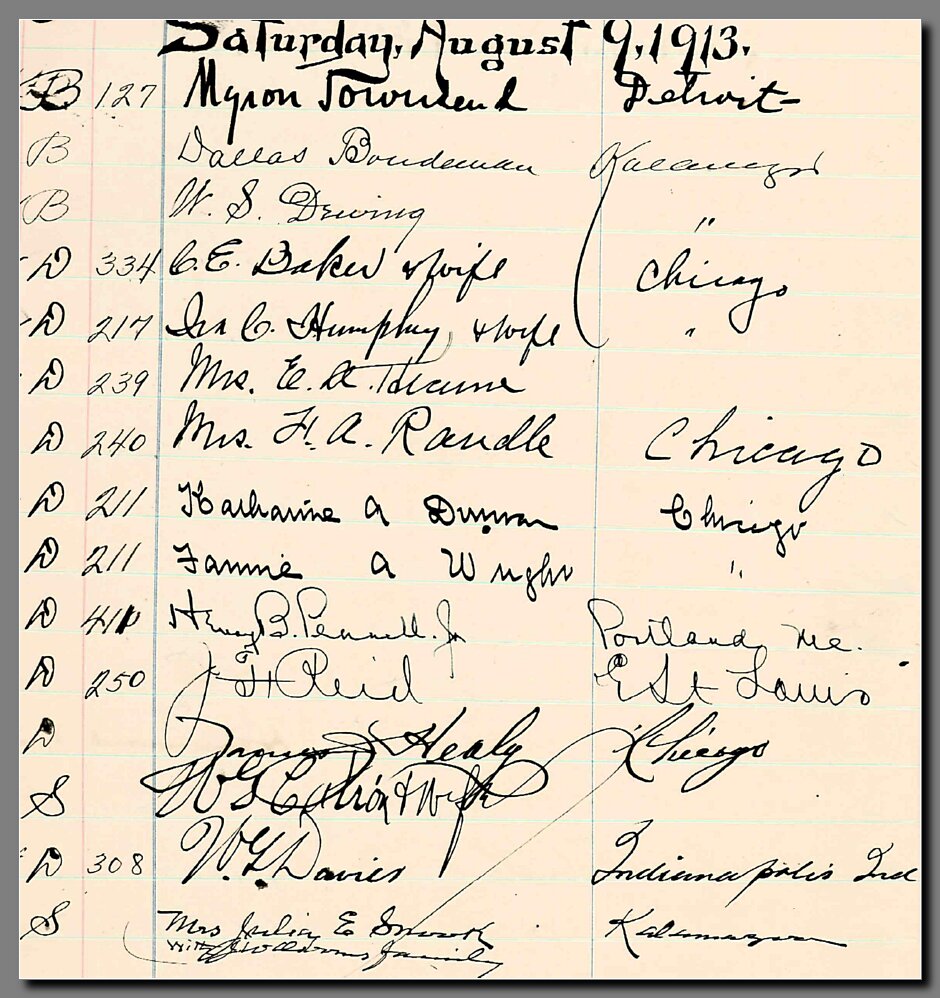 Saturday, August 9, 1913.
B 127 Myron Townsend Detroit
B Dallas Boudeman Kalamazoo
B W. S. Dewing "
D 334 C. E. Baker & wife Chicago
D 217 Ira C. Humphrey & wife "
D 239 Mrs. E. A.
D 240 Mrs. F. A. Randle Chicago
D 211 Katharine A Chicago
D 211 Fannie A Wright "
D Henry B. Pennell. Jr Portland, Me.
D 250 J. H. Reid E St Louis
D James J Healy Chicago
S & Wife
D 308 W. G. Davies Indianapolis Ind
S Mrs Julia E Kalamazoo
with Williams family